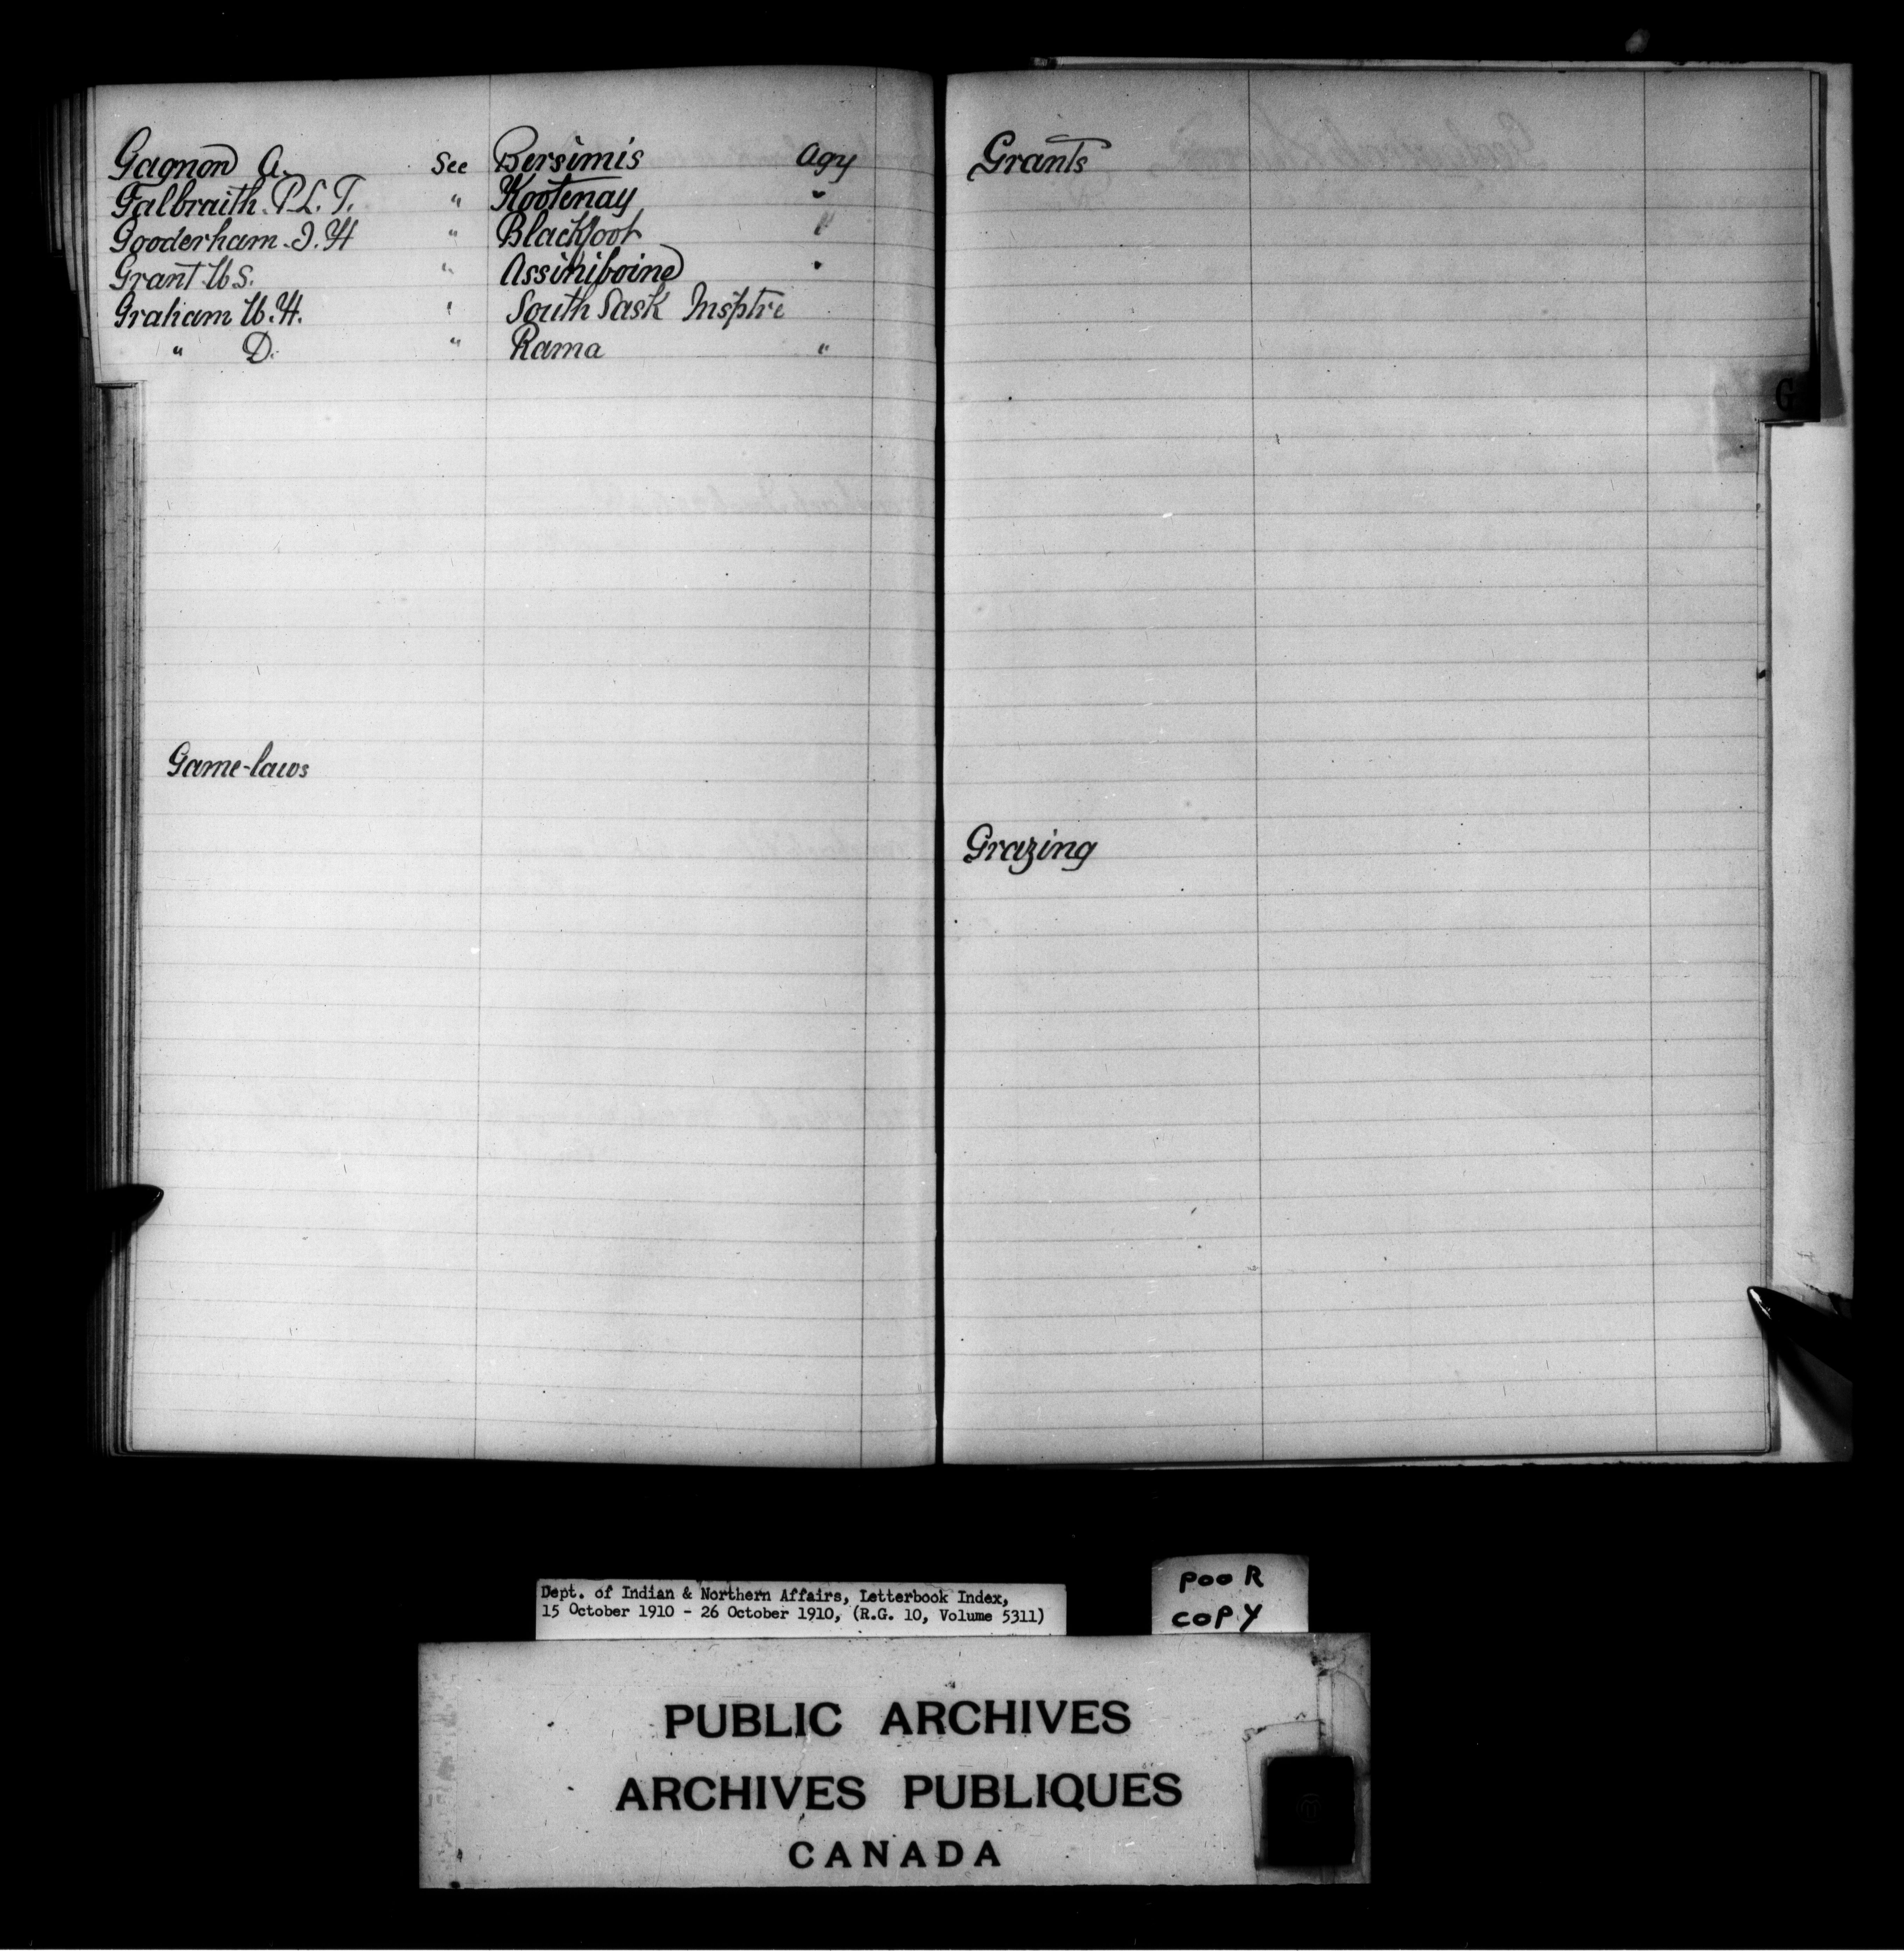 Gagnon A. See Bersimis Agy
Galbraith. R.L.T. " Kootenay "
Gooderham. J.H " Blackfoot "
Grant W.S. " Assiniboine "
Graham W.H. " South Sask Insptre
" D. " Rama "
Game-laws
Grants
G
Grazing
Dept. of Indian & Northern Affairs, Letterbook Index,
15 October 1910 - 26 October 1910, (R.G. 10, Volume 5311)
POOR
COPY
PUBLIC ARCHIVES
ARCHIVES PUBLIQUES
CANADA